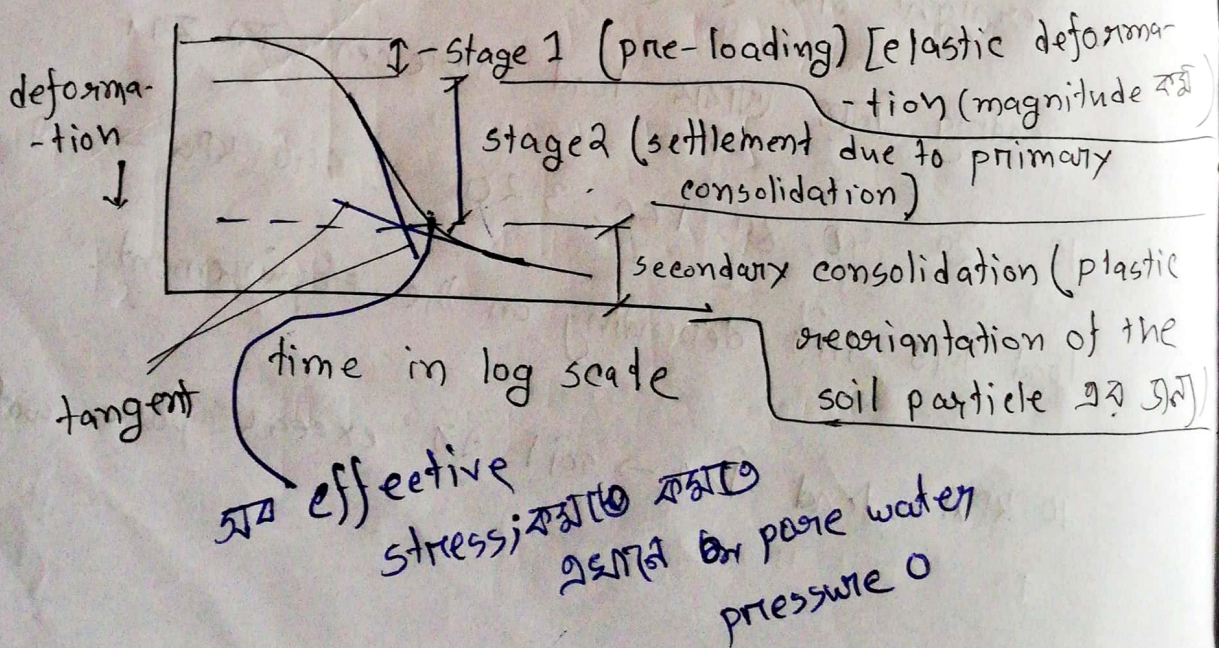 deforma-
-tion
↓
- Stage 1 (pre-loading) [elastic deforma-
-tion (magnitude কম)
stage 2 (settlement due to primary
consolidation)
secondary consolidation (plastic
reoriantation of the
soil particle এর জন্য)
time in log scale
tangent
সব effective
stress; কমতে কমতে
এখানে pore water
pressure 0